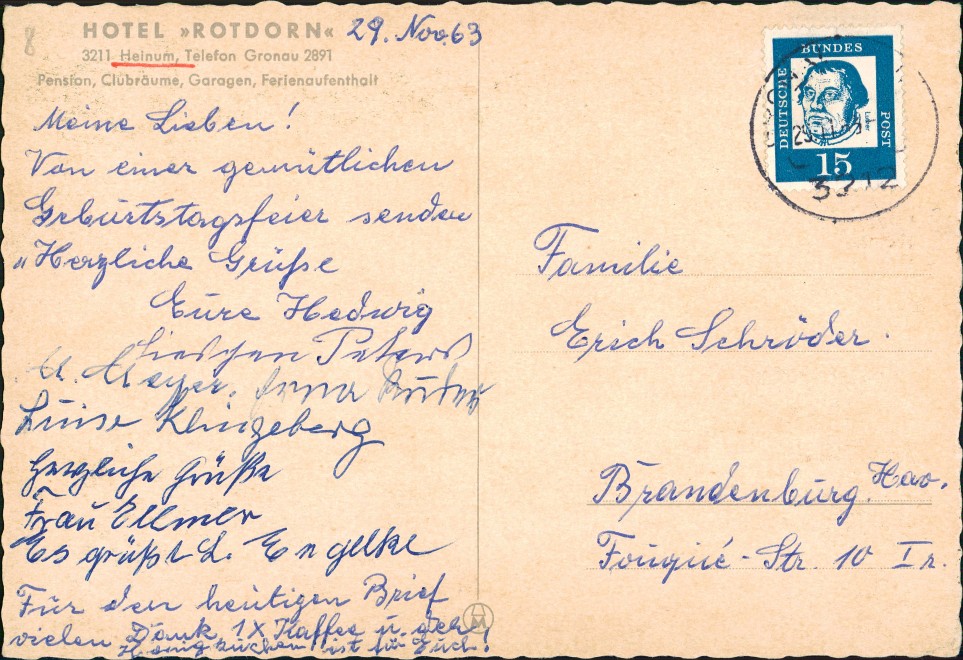 HOTEL »ROTDORN« 29. Nov. 63
3211 Heinum, Telefon Gronau 2891
Pension, Clubräume, Garagen, Ferienaufenthalt
Meine Lieben!
Von einer gemütlichen
Geburtstagsfeier senden
„Herzliche Grüße
Eure Hedwig
Lieschen Peters
Meyer, Erna
Luise Klingeberg
Herzliche Grüße
Frau Ellmer
Es grüßt L. Engelke
Für den heutigen Brief
vielen Dank, 1 X Kaffee u. der
Honigkuchen ist für Euch!
DEUTSCHE BUNDES POST
15
Familie
Erich Schröder.
Brandenburg. Hav.
Fouqué-Str. 10 Ir.